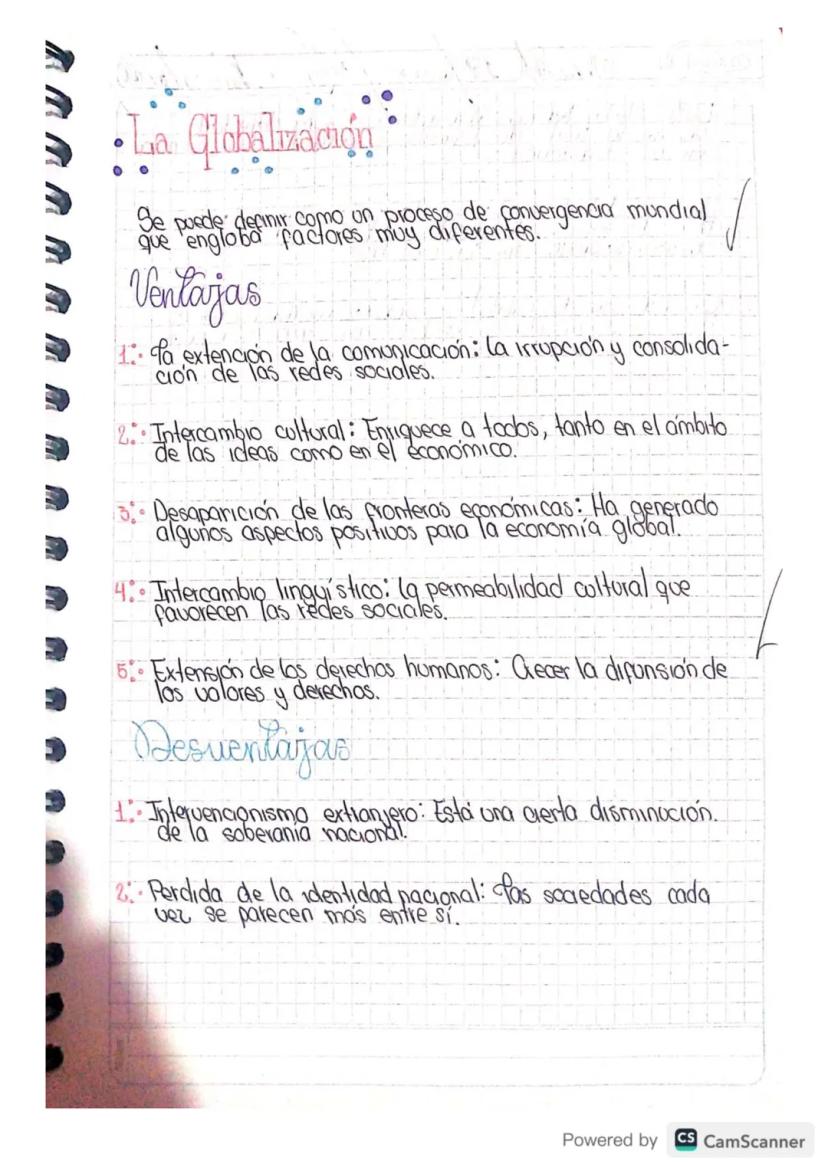 La Globalización
Se puede definir como un proceso de convergencia mundial
que engloba factores muy diferentes.
Ventajas
1. La extención de la comunicación: La irrupción y consolida-
ción de las redes sociales.
2. Intercambio cultural: Enriquece a todos, tanto en el ámbito
de las ideas como en el económico.
3. Desaparición de las fronteras económicas: Ha generado
algunos aspectos positivos para la economía global.
4. Intercambio linguístico: la permeabilidad cultural que
favorecen las redes sociales.
5. Extensión de los derechos humanos: Crecer la difunsión de
los valores y derechos.
Desventajas
1. Intervencionismo extranjero: Está una cierta disminución.
de la soberanía nacional.
2. Perdida de la identidad nacional: Las sociedades cada
vez se parecen más entre sí.
Powered by CS CamScanner